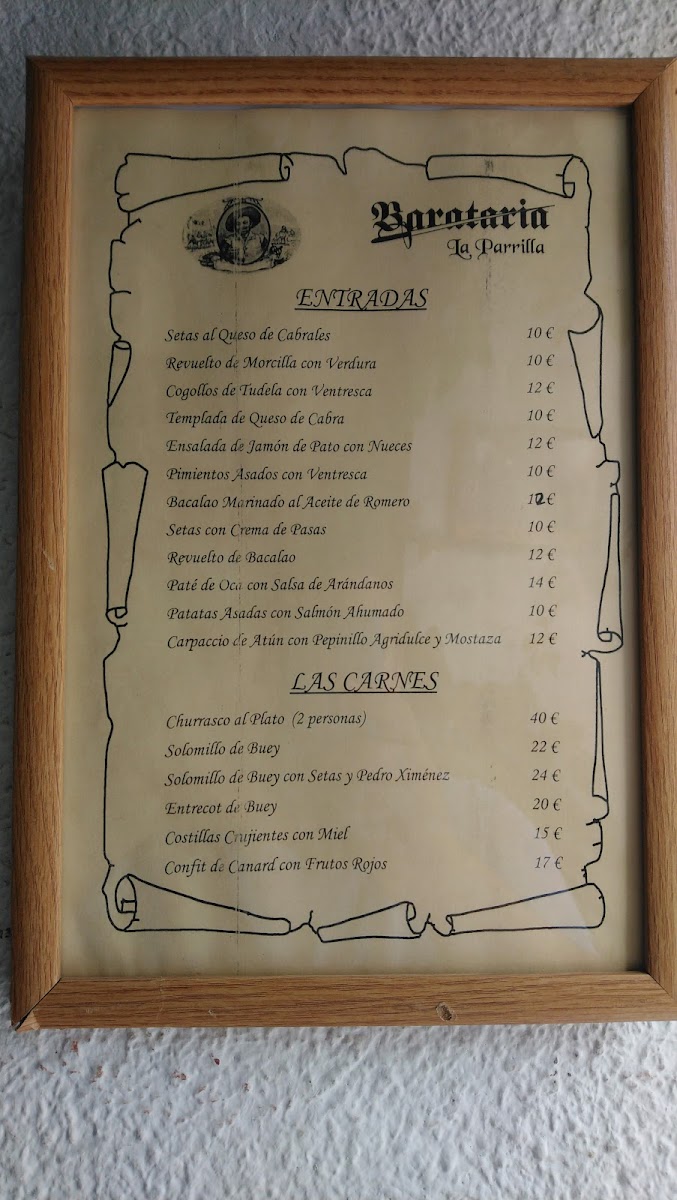 Barataria
La Parrilla
ENTRADAS
Setas al Queso de Cabrales 10 €
Revuelto de Morcilla con Verdura 10 €
Cogollos de Tudela con Ventresca 12 €
Templada de Queso de Cabra 10 €
Ensalada de Jamón de Pato con Nueces 12 €
Pimientos Asados con Ventresca 10 €
Bacalao Marinado al Aceite de Romero 12 €
Setas con Crema de Pasas 10 €
Revuelto de Bacalao 12 €
Paté de Oca con Salsa de Arándanos 14 €
Patatas Asadas con Salmón Ahumado 10 €
Carpaccio de Atún con Pepinillo Agridulce y Mostaza 12 €
LAS CARNES
Churrasco al Plato (2 personas) 40 €
Solomillo de Buey 22 €
Solomillo de Buey con Setas y Pedro Ximénez 24 €
Entrecot de Buey 20 €
Costillas Crujientes con Miel 15 €
Confit de Canard con Frutos Rojos 17 €